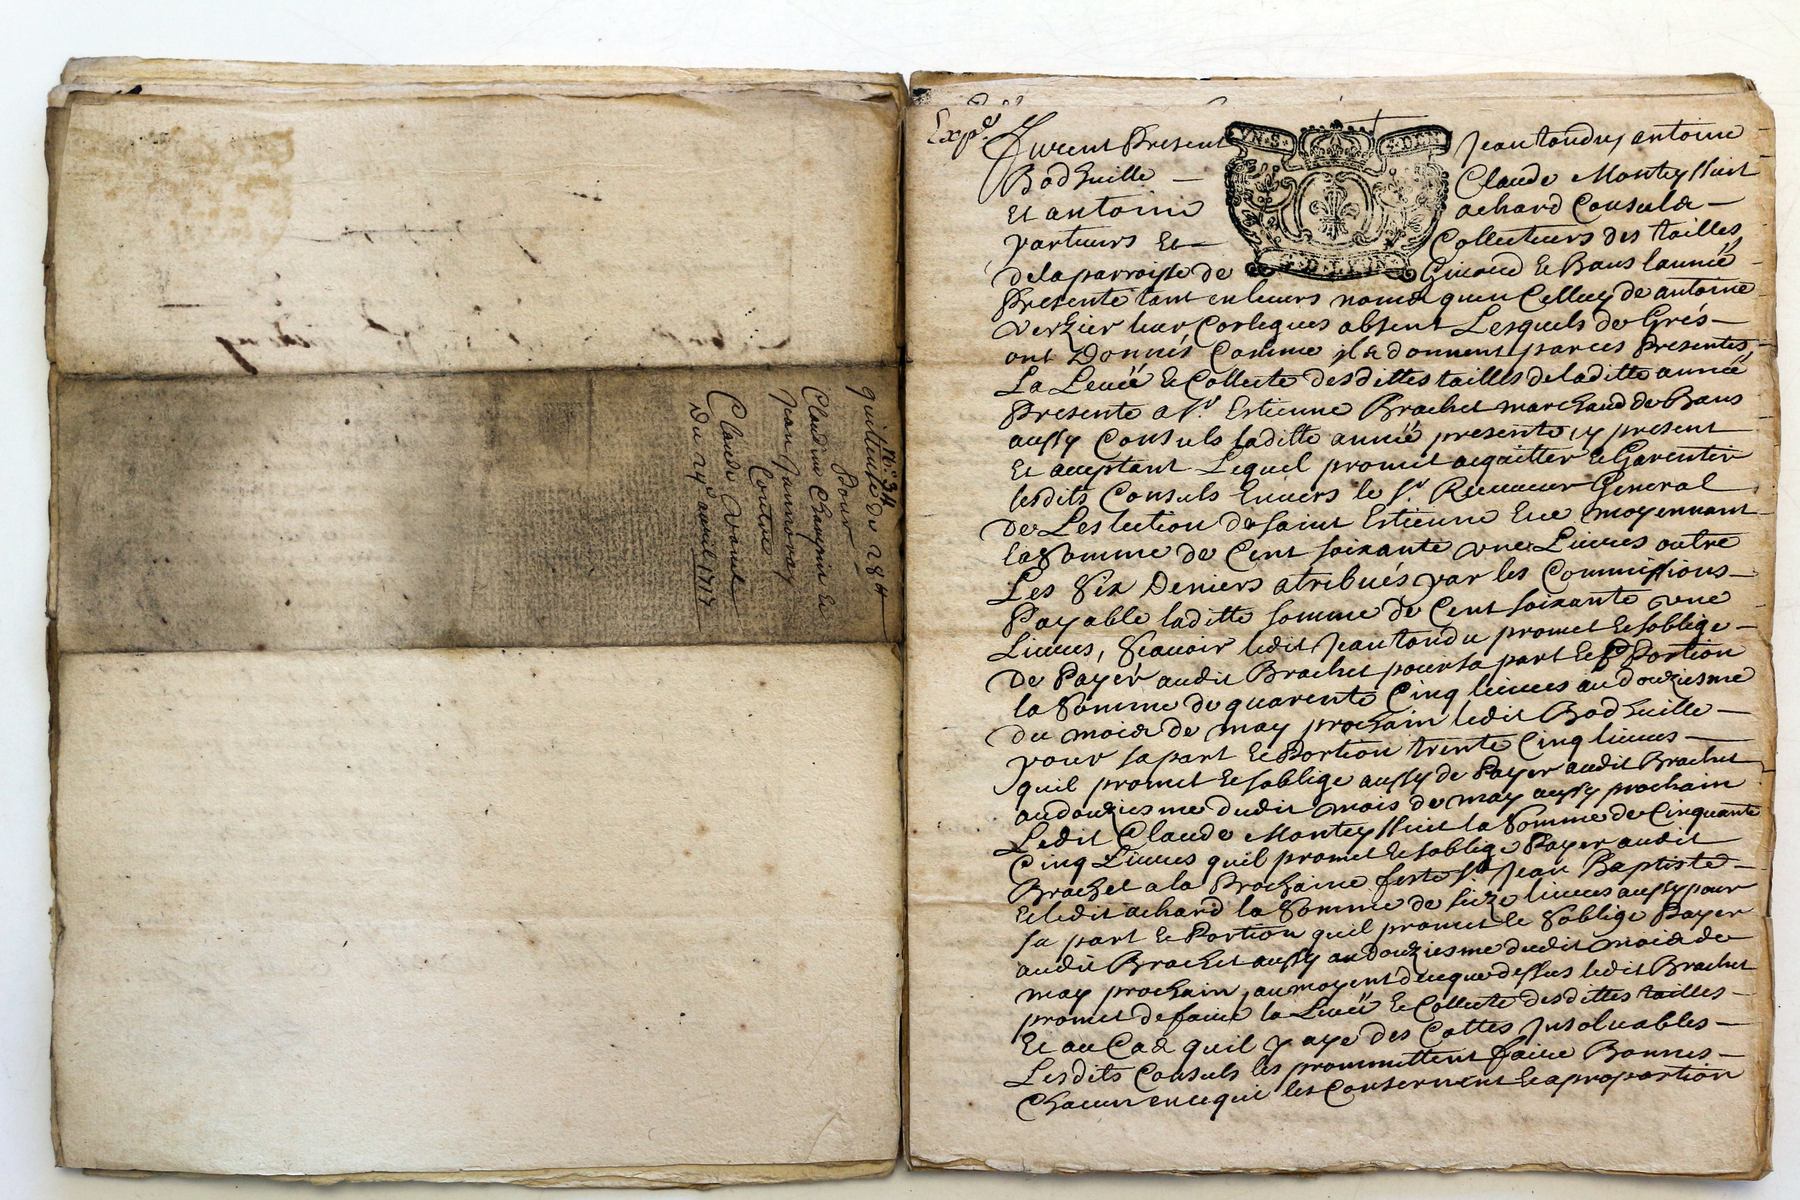 n.º 34
quittence de 28 #
Pour
Claudine Champin &
Jean
Contre
Claude
Du 24e avril 1717
Expd
Furent Presents Jean tondu, antoine
Bodhuille — Claude Monteyssuit
Et antoine achard Consuls —
parteurs Et — Collecteurs des tailles
de la parroisse de & Baus lannée
Presente tant en leurs noms quen Celluy de antoine
Verzier leur Corlegues absent Lesquels de Grés —
ont Donnés Comme ils donnent par ces Presentes
La Levéé & Collecte desdittes tailles de laditte année
Presente a Sr. Estienne Brachet marchand de Baus
aussy Consuls laditte année presente, y present
Et acceptant Lequel promet acquitter & Garentir
lesdits Consuls Envers le Sr. Receveur General
de Leslection de saint Estienne Et ce moyennant
la Somme de Cent soixante une Livres outre
Les Six Deniers atribués par les Commissions —
Payable laditte somme de Cent soixante une
Livres, Scavoir ledit Jean tondu promet & soblige —
De Payér audit Brachet pour sa part & Portion
la Somme de quarente Cinq livres au douziesme
du mois de may prochain ledit Bodhuille —
pour sa part & Portion trente Cinq livres —
quil promet & soblige aussy de Payer audit Brachet
au douziesme dudit mois de may aussy prochain
Ledit Claude Monteyssuit la Somme de Cinquante
Cinq Livres quil promet & soblige Payer audit
Brachet a la Prochaine feste St Jean Baptiste —
& ledit achard la Somme de seize livres aussy pour
sa part & Portion quil promet & Soblige Payer
audit Brachet aussy au douziesme dudit mois de
may prochain, au moyent duquel dessus ledit Brachet
promet de faire la Levéé & Collecte desdittes tailles —
Et au Cas quil y aye des Cottes Insolvables —
Lesdits Consuls les promettent faire Bonnes —
Chacun en ce qui les Conservent & a proportion